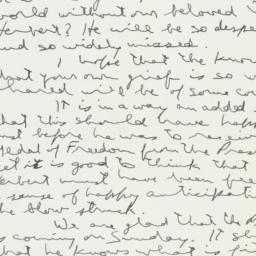 world without our beloved
Herbert? He will be so despe
and so widely missed.
I hope that the know
that your own grief is so w
shared will be of some co
It is in a way an added s
that this should have happ
just before he was to receive
Medal of Freedom from the Pres
yet it is good to think that
Herbert must have been feel
a sense of happy anticipati
the blow struck.
We are glad that the P
is coming on Sunday. It s
that he knows what is fi